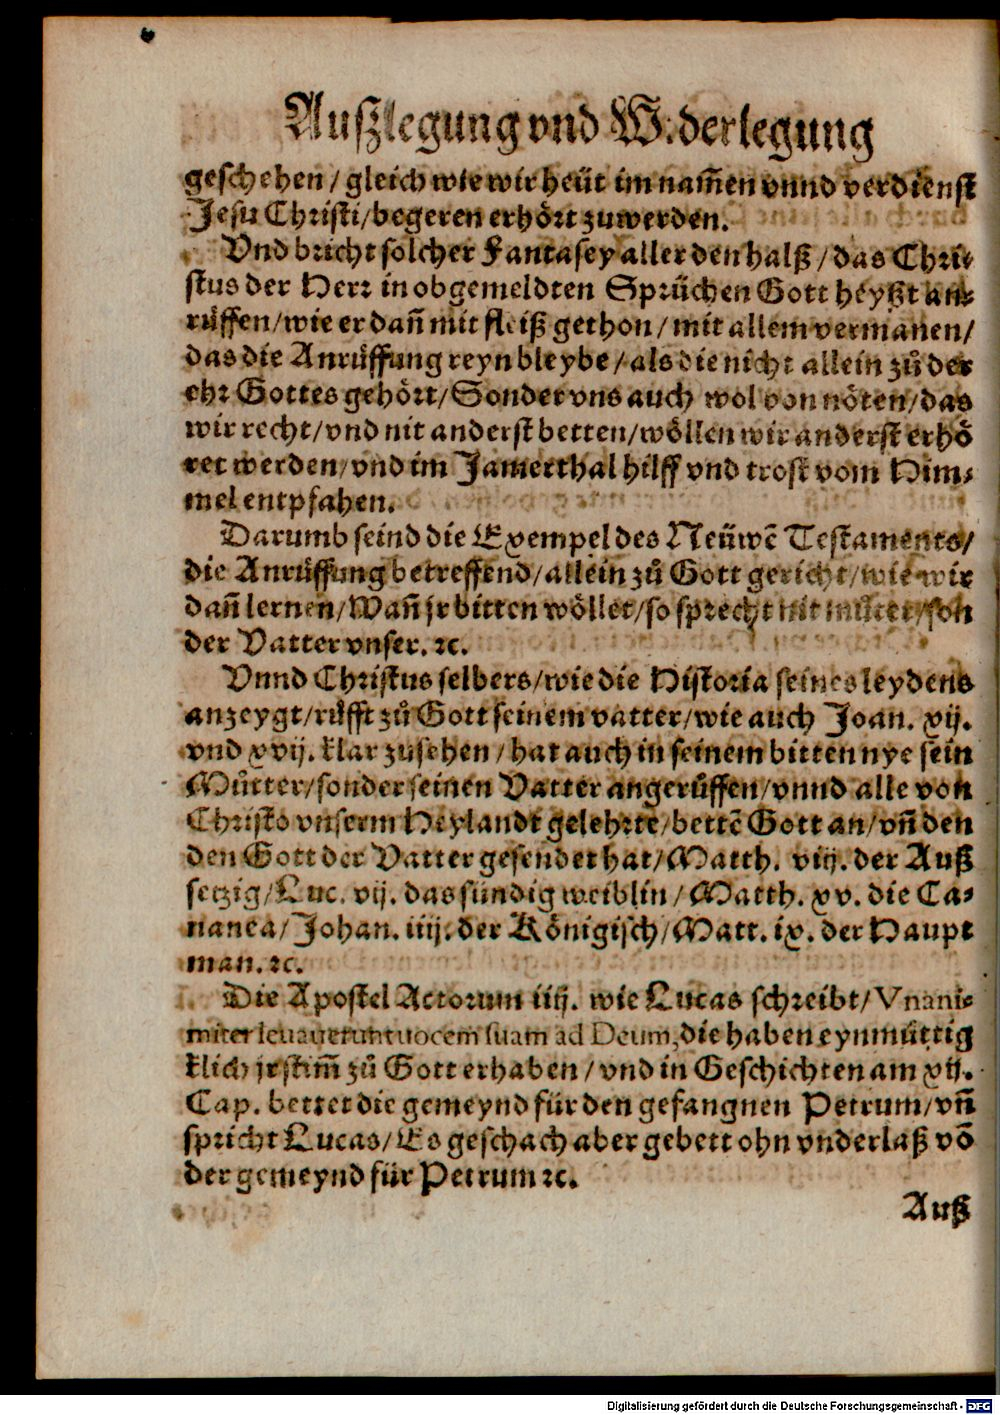 Außlegung vnd Widerlegung
geschehen / gleich wie wir heüt im nam̃en vnnd verdienst
Jesu Christi / begeren erhört zuwerden.
Vnd bricht solcher Fantasey aller den halß / das Chri-
stus der Herr in obgemeldten Sprüchen Gott heyßt an-
růffen / wie er dañ mit fleiß gethon / mit allem vermanen /
das die Anrůffung reyn bleybe / als die nicht allein zů der
ehr Gottes gehört / Sonder vns auch wol von nöten / das
wir recht / vnd nit anderst betten / wöllen wir anderst erhö
ret werden / vnd im Jamerthal hilff vnd trost vom Him-
mel entpfahen.
Darumb seind die Exempel des Neüwẽ Testaments /
die Anrůffung betreffend / allein zů Gott gericht / wie wir
dañ lernen / Wañ jr bitten wöllet / so sprecht nit můter / son
der Vatter vnser. ꝛc.
Vnnd Christus selbers / wie die Historia seines leydens
anzeygt / růfft zů Gott seinem vatter / wie auch Joan. xij.
vnd xvij. klar zusehen / hat auch in seinem bitten nye sein
Můtter / sonder seinen Vatter angerůffen / vnnd alle von
Christo vnserm Heylandt gelehrte / bettẽ Gott an / vñ den
den Gott der Vatter gesendet hat / Matth. viij. der Auß
setzig / Luc. vij. das sündig weiblin / Matth. xv. die Ca-
nanea / Johan. iiij. der Königisch / Matt. ix. der Haupt
man. ꝛc.
Die Apostel Actorum iiij. wie Lucas schreibt / Vnani-
miter leuauerunt uocem suam ad Deum, die haben eynmüttig
klich jr stim̃ zů Gott erhaben / vnd in Geschichten am xij.
Cap. bettet die gemeynd für den gefangnen Petrum / vñ
spricht Lucas / Es geschach aber gebett ohn vnderlaß võ
der gemeynd für Petrum ꝛc.
Auß
Digitalisierung gefördert durch die Deutsche Forschungsgemeinschaft - DFG